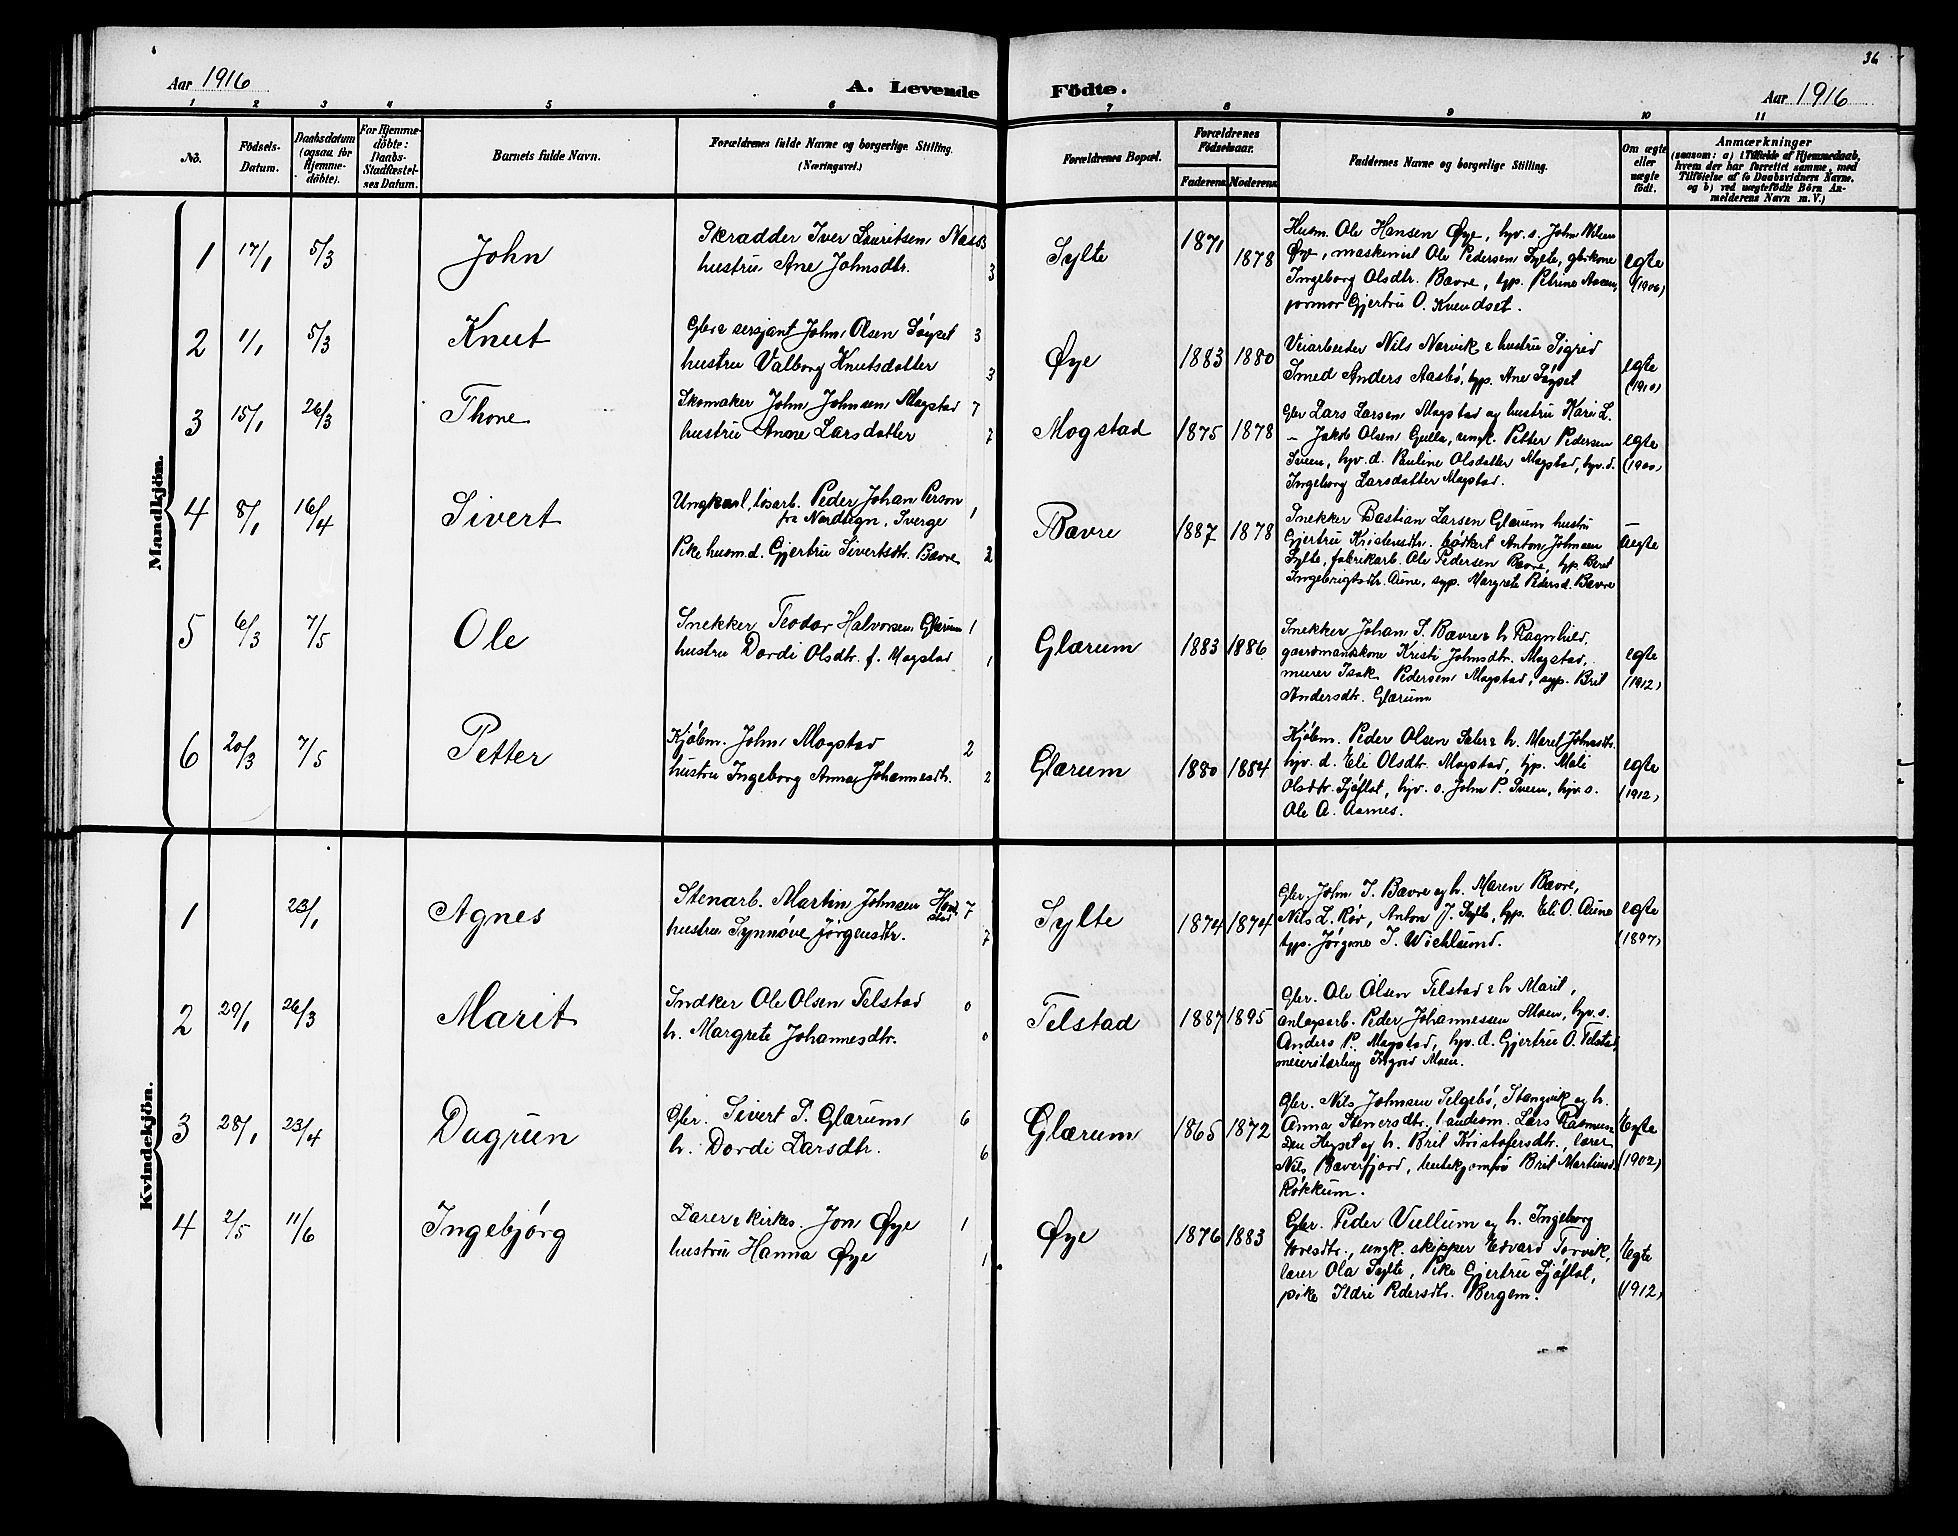 36
Aar 1916
A. Levende Födte.
Aar 1916
1 2 3 4 5 6 7 8 9 10 11
No.
Födsels-Datum.
Daabsdatum (ogsaa for Hjemmedöbte).
For Hjemmedöbte: Daabs-Stadfæstelses Datum.
Barnets fulde Navn.
Forældrenes fulde Navne og borgerlige Stilling. (Næringsvei.)
Forældrenes Bopæl.
Forældrenes Födselsaar.
Faderens Moderens
Faddernes Navne og borgerlige Stilling.
Om ægte eller uægte födt.
Anmærkninger
(saasom: a) i Tilfælde af Hjemmedaab, hvem der har forrettet samme, med Tilföielse af to Daabsvidners Navne. og b) ved uægtefödte Börn Anmelderens Navn m. V.)
Mandkjön.
1 17/1 5/3 John
Skradder Iver Lauritsen Næss 3
hustru Ane Johnsdtr. 3
Sylte 1871 1878
Husm. Ole Hansen Øye, hyv. s. John Nilsen
Øye, maskinist Ole Pedersen Sylte, gbrkone
Ingeborg Olsdtr. Bævre, typ. Petrine Aasen,
jormor Gjertru O. Kvendset.
egte
(1906)
2 1/1 5/3 Knut
Gbr & sersjant John Olsen Søyset 3
hustru Valborg Knutsdatter 3
Øye 1883 1880
Veiarbeider Nils Nervik & hustru Sigrid
Smed Anders Aasbø, typ. Ane Søyset
egte
(1910)
3 15/1 26/3 Thone
Skomaker John Johnsen Mogstad 7
hustru Anne Larsdatter 7
Mogstad 1875 1878
Gbr Lars Larsen Mogstad og hustru Kari L.
– Jakob Olsen Gulla, ungk. Petter Pedersen
Sveen, hyv. d. Pauline Olsdatter Mogstad, hyv. d.
Ingeborg Larsdatter Mogstad.
egte
(1900)
4 8/1 16/4 Sivert
Ungkarl, løsarb. Peder Johan Person 1
fra Nordsegn, Sverge
Pike husm. d. Gjertru Sivertsdtr. Bævre 2
Bævre 1887 1878
Snekker Bastian Larsen Glærum hustru
Gjertru Kristensdtr. bødkert Anton Johnsen
Sylte, fabrikarb. Ole Pedersen Bævre, typ. Beret
Ingebrigtsdtr. Aune, syp. Margrete Pedersd. Bævre
–
uegte
5 6/3 7/5 Ole
Snekker Teodor Halvorsen Glærum 1
hustru Dordi Olsdtr. f. Mogstad 1
Glærum 1883 1886
Snekker Johan S. Bævre & h. Ragnhild,
gassomandskone Kristi Johnsdtr. Mogstad,
murer Isak Pedersen Mogstad, syp. Brit
Andersdtr. Glærum
egte
(1912)
6 20/3 7/5 Petter
Kjøbm. John Mogstad 2
hustru Ingeborg Anna Johannesdtr. 2
Glærum 1880 1884
Kjøbm. Peder Olsen Sæter & h. Maret Johnsdtr.
hyv. d. Eli Olsdtr. Mogstad, typ. Mali
Olsdtr. Sjøflot, hyv. s. John P. Sveen, hyv. s.
Ole A. Aarnes.
egte
(1912)
Kvindekjön.
1 23/1 Agnes
Stenarb. Martin Johnsen 7
hustru Synnøve Jørgensdtr. 7
Sylte 1874 1874
Gbr John I. Bævre og h. Maren Bævre,
Nils L. Rør, Anton J. Sylte, typ. Eli O. Aune
typ. Jørgine I. Wicklund.
egte
(1897)
2 29/1 26/3 Marit
Indker Ole Olsen Telstad 0
h. Margrete Johannesdtr. 0
Telstad 1887 1895
Gbr. Ole Olsen Telstad & h Marit,
anlegsarb. Peder Johannessen Moen, hyv. s.
Anders P. Mogstad, hyv. d. Gjertru O. Telstad,
meierilærling Ingvor Moen.
3 28/1 23/4 Dagrun
Gbr. Sivert P. Glærum 6
h. Dordi Larsdtr. 6
Glærum 1865 1872
Gbr. Nils Johnsen Selgebø, Stangvik og h.
Anna Stenersdtr. landesm. Lars Rasmus-
sen Heyset og h. Brit Kristofersdtr. lærer
Nils Bæverfjord, butikjomfrø Brit Martinsd.
Røkkum.
Egte
(1902)
4 2/5 11/6 Ingebjørg
Lærer & kirkes. Jon Øye 1
hustru Hanna Øye 1
Øye 1876 1883
Gbr. Peder Vullum og h. Ingeborg
Toresdtr., ungk. skipper Edvard Torvik,
lærer Ola Sylte, Pike Gjertru Sjøflot,
pike Ildri Pedersdtr. Bergem.
Egte
(1912)